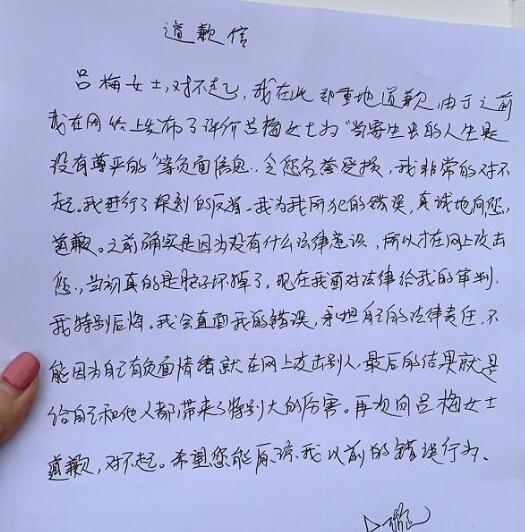 道歉信
吕梅女士，对不起，我在此郑重地道歉，由于之前
我在网络上发布了评价吕梅女士为“当寄生虫的人生是
没有尊严的”等负面信息，令您名誉受损，我非常的对不
起。我进行了深刻的反省。我为我所犯的错误，真诚地向您
道歉。之前确实是因为没有什么法律意识，所以才在网上攻击
您，当初真的是脑子坏掉了，现在我面对法律给我的审判，
我特别后悔。我会直面我的错误，承担自己的法律责任，不
能因为自己有负面情绪就在网上攻击别人，最后的结果就是
给自己和他人都带来了特别大的伤害。再次向吕梅女士
道歉，对不起。希望您能原谅我以前的错误行为。